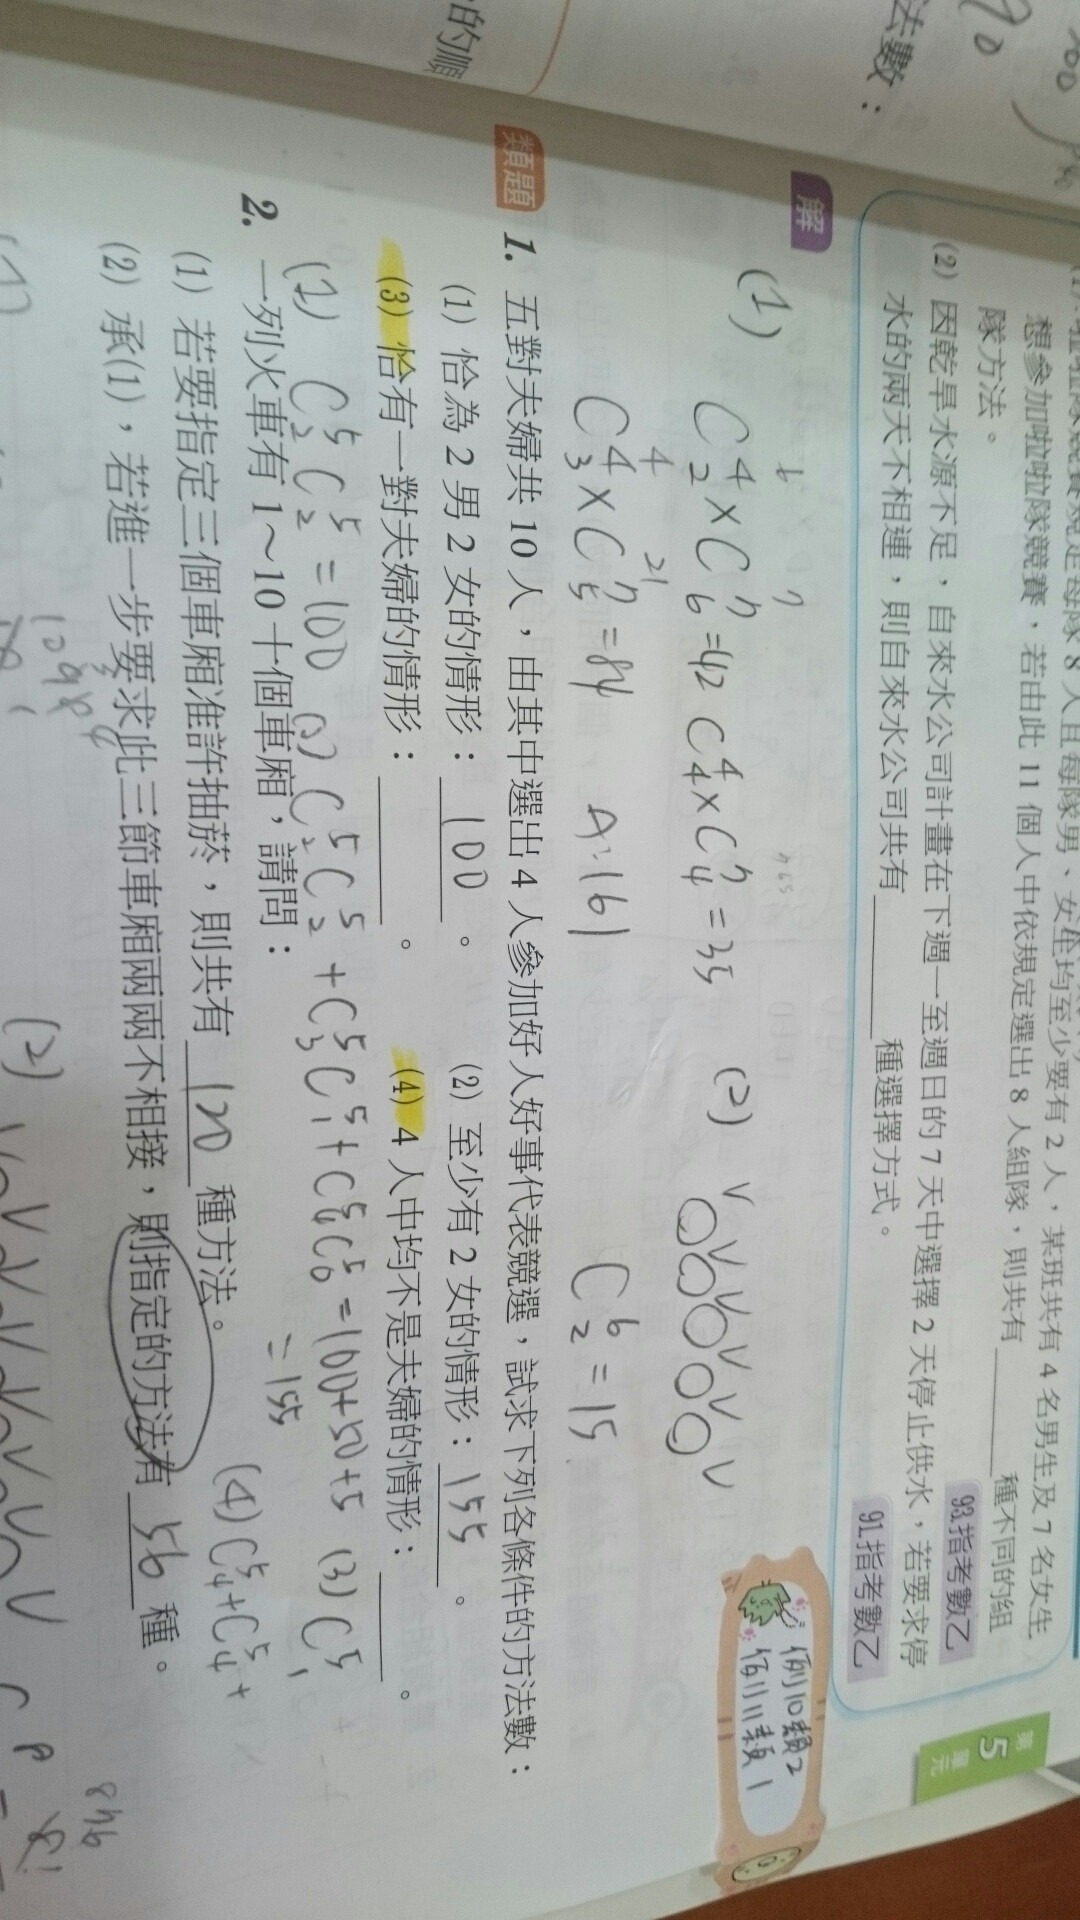 的順
法數：
70
想參加啦啦隊競賽，若由此 11 個人中依規定選出 8 人組隊，則共有______種不同的組
隊方法。
93.指考數乙
(2) 因乾旱水源不足，自來水公司計畫在下週一至週日的 7 天中選擇 2 天停止供水，若要求停
水的兩天不相連，則自來水公司共有______種選擇方式。
91.指考數乙
第5單元
解
例10類2
例11類1
(1) C⁴₂×C⁷₆=42 C⁴₄×C⁷₄=35
C⁴₃×C⁷₅=84 A:161
(2) V○V○V○V○V○V
C⁶₂=15
類題
1. 五對夫婦共 10 人，由其中選出 4 人參加好人好事代表競選，試求下列各條件的方法數：
(1) 恰為 2 男 2 女的情形：100。 (2) 至少有 2 女的情形：155。
(3) 恰有一對夫婦的情形：______。 (4) 4 人中均不是夫婦的情形：______。
(1) C⁵₂C⁵₂=100 (2) C⁵₂C⁵₂+C⁵₃C⁵₁+C⁵₄C⁵₀=100+50+5 (3) C⁵₁
=155
2. 一列火車有 1～10 十個車廂，請問：
(1) 若要指定三個車廂准許抽菸，則共有 120 種方法。
(4) C⁵₄+C⁵₄+
(2) 承(1)，若進一步要求此三節車廂兩兩不相接，則指定的方法有 56 種。
(1)
(2)